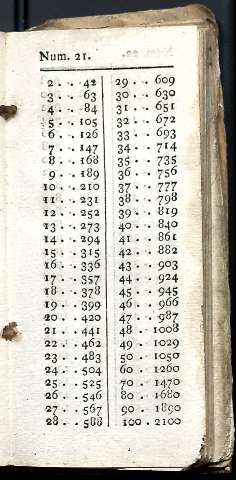 Num. 21.
2 . . 42
3 . . 63
4 . . 84
5 . . 105
6 . . 126
7 . . 147
8 . . 168
9 . . 189
10 . . 210
11 . . 231
12 . . 252
13 . . 273
14 . . 294
15 . . 315
16 . . 336
17 . . 357
18 . . 378
19 . . 399
20 . . 420
21 . . 441
22 . . 462
23 . . 483
24 . . 504
25 . . 525
26 . . 546
27 . . 567
28 . . 588
29 . . 609
30 . . 630
31 . . 651
32 . . 672
33 . . 693
34 . . 714
35 . . 735
36 . . 756
37 . . 777
38 . . 798
39 . . 819
40 . . 840
41 . . 861
42 . . 882
43 . . 903
44 . . 924
45 . . 945
46 . . 966
47 . . 987
48 . . 1008
49 . . 1029
50 . . 1050
60 . . 1260
70 . . 1470
80 . . 1680
90 . . 1890
100 . . 2100